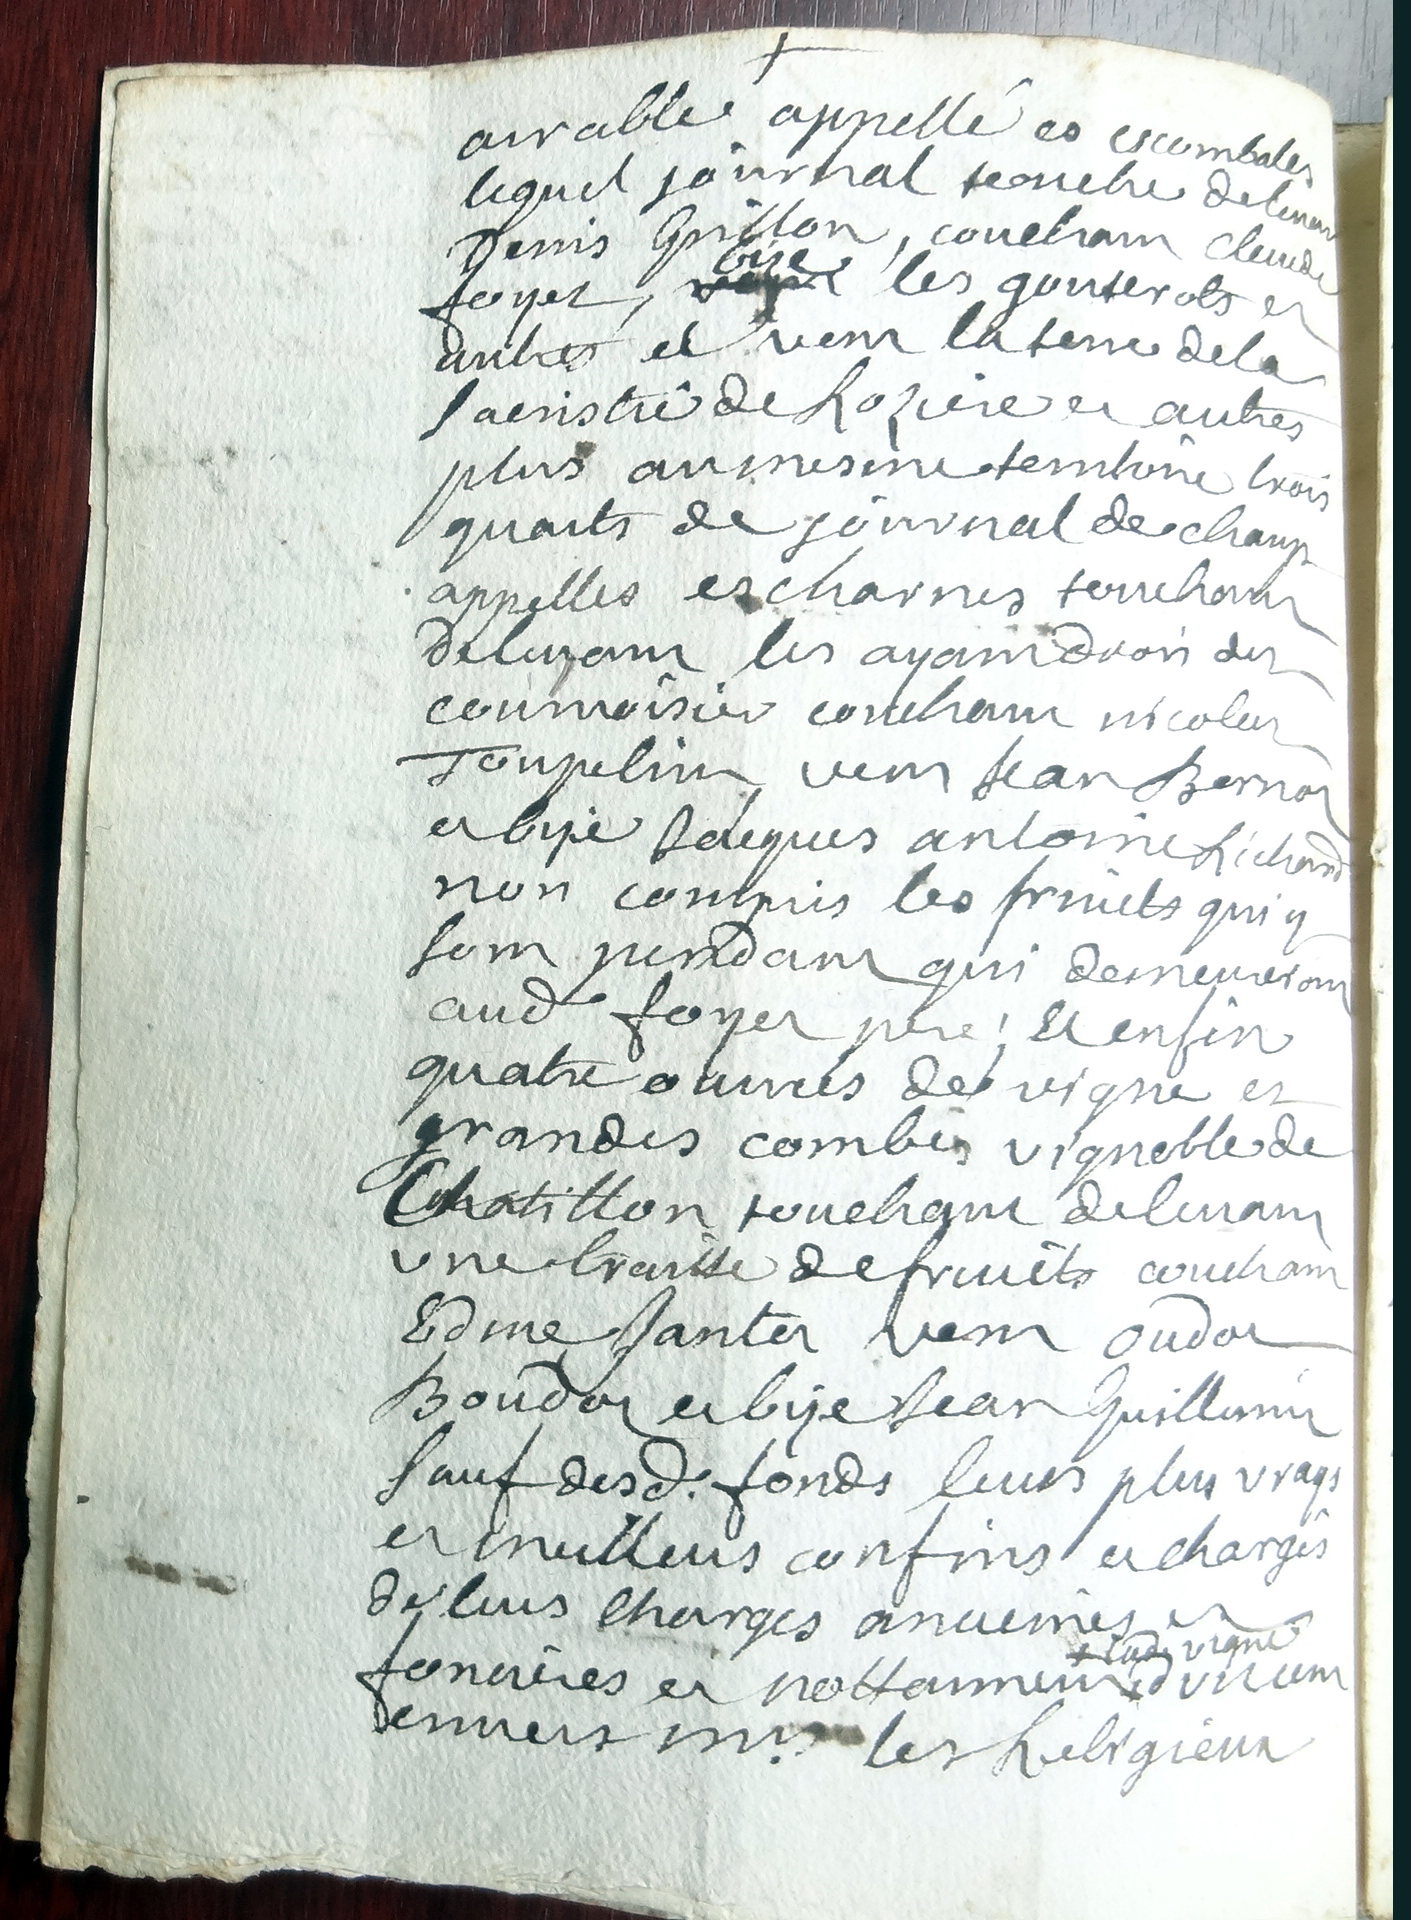 arrable appellé es escombales
lequel journal touche delevan
Denis Grillon, coucham claude
foyer, bise les gouterots et
autres et vem la terre dela
sacristie de Roziere et autres
plus aumesme territoire trois
quarts de journal de champ
appelles es charmes toucham
delevam les ayam droit des
coucham nicolas
Toupelin vem Jean Bernor
et bise Jacques antoine Richard
non compris les fruicts qui y
som pendam qui demeurerom
aud foyer pere; Et enfin
quatre ouvrees de vigne es
grandes combes vignoble de
Chatillon toucham delevam
une traitte de fruicts coucham
Edme Janter vem oudot
Boudot et bise Jean Guillemin
sauf desd. fonds leurs plus vrays
et meilleurs confins et charges
de leurs charges anciennes et
lad vigne
foncieres et nottamment dun cem
envers mrs. les Religieux